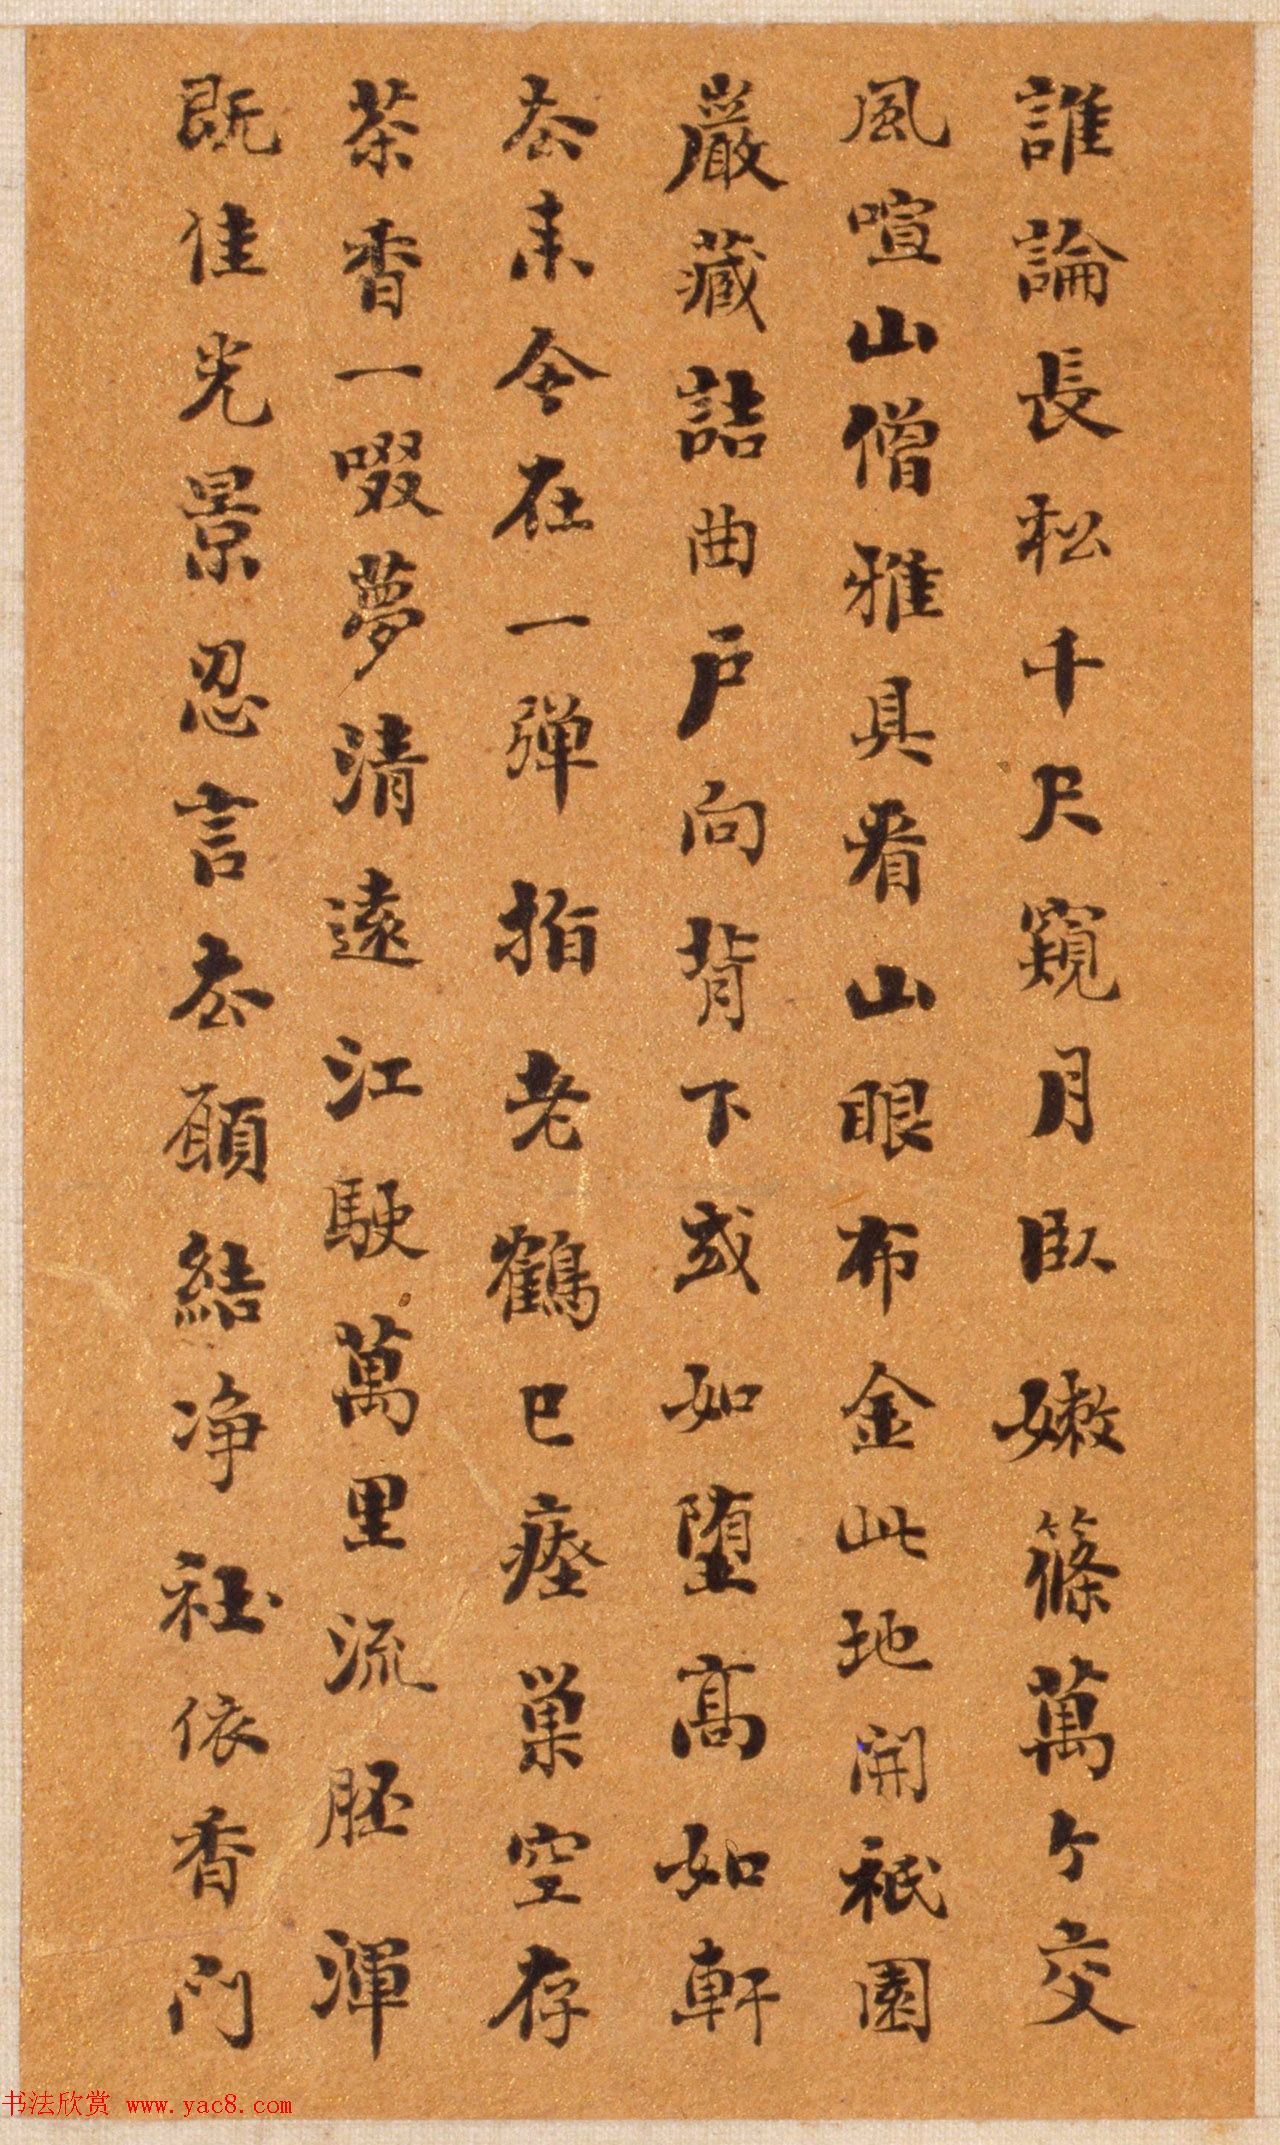 誰論長松千尺窺月臥嫩篠萬个交
風喧山僧雅具看山眼布金此地開祇園
巖藏詰曲戶向背下或如墮高如軒
去来今在一弹指老鶴已瘞巢空存
茶香一啜夢清遠江駛萬里流胚渾
既佳光景忍言去願結净社依香门
书法欣赏 www.yac8.com